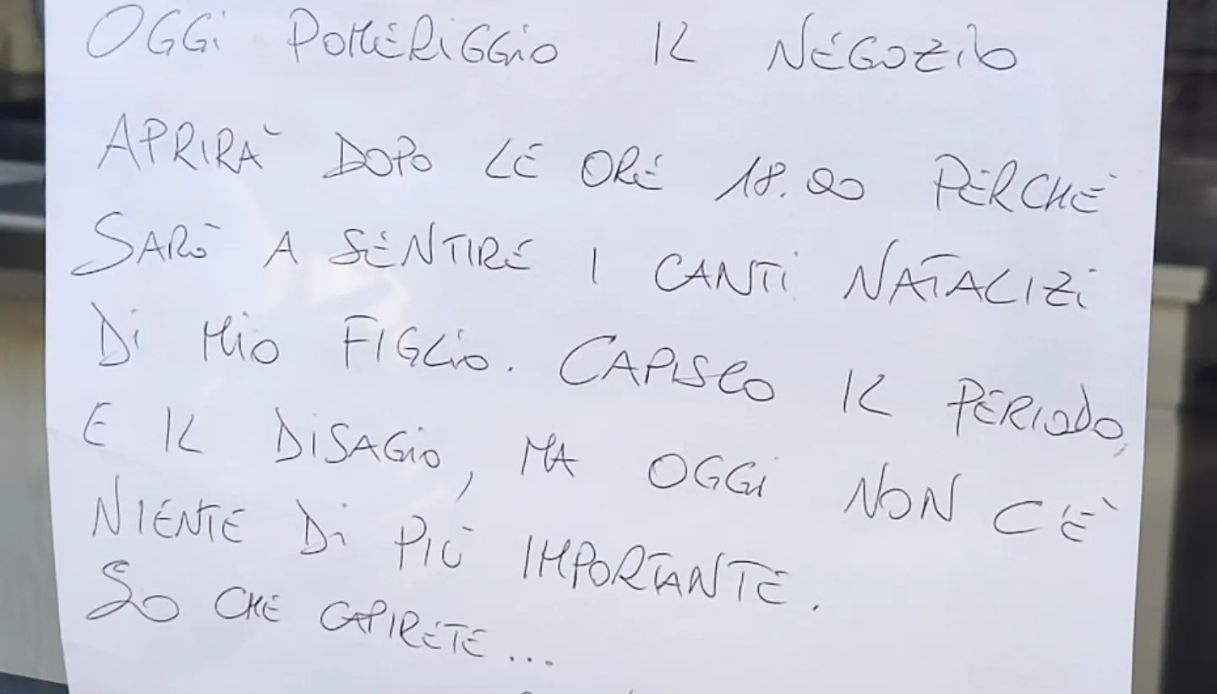 OGGI POMERIGGIO IL NEGOZIO
APRIRÀ DOPO LE ORE 18.00 PERCHÈ
SARÒ A SENTIRE I CANTI NATALIZI
DI MIO FIGLIO. CAPISCO IL PERIODO,
E IL DISAGIO, MA OGGI NON C'È
NIENTE DI PIÙ IMPORTANTE.
SO CHE CAPIRETE...